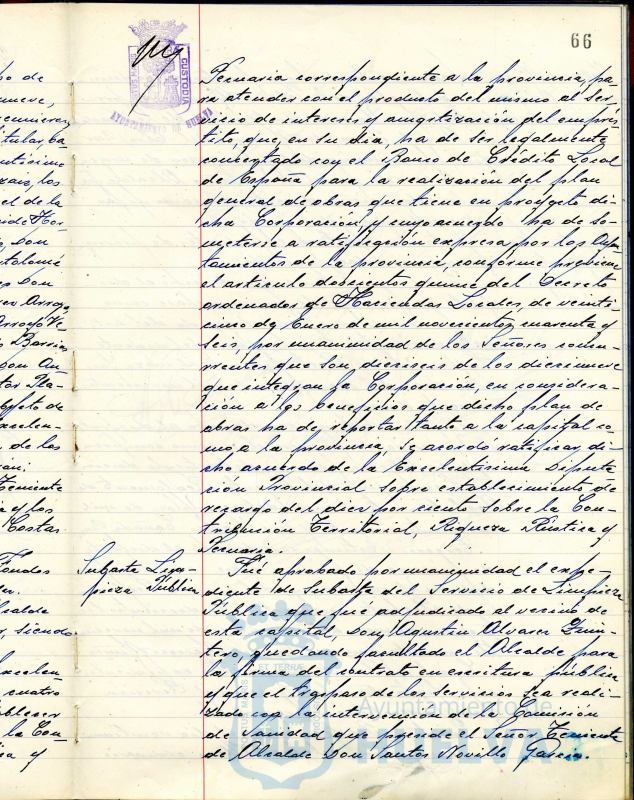 66
CUSTODIA
AYUNTAMIENTO DE HUELVA
Pecuaria correspondiente a la provincia, pa-
ra atender con el producto del mismo al ser-
vicio de intereses y amortización del emprés-
tito, que, en su día, ha de ser legalmente
concertado con el Banco de Crédito Local
de España para la realización del plan
general de obras que tiene en proyecto di-
cha Corporación, y cuyo acuerdo ha de so-
meterse a ratificación expresa por los Ayun-
tamientos de la provincia, conforme previene
el artículo doscientos quince del Decreto
ordenador de Haciendas Locales, de veinti-
cinco de Enero de mil novecientos cuarenta y
seis, por unanimidad de los Señores concu-
rrentes que son dieciseis de los diecinueve
que integran la Corporación, en considera-
ción a los beneficios que dicho plan de
obras ha de reportar tanto a la capital co-
mo a la provincia, se acordó ratificar di-
cho acuerdo de la Excelentísima Diputa-
ción Provincial sobre establecimiento de
recargo del diez por ciento sobre la Con-
tribución Territorial, Riqueza Rústica y
Pecuaria.
Subasta Lim-
pieza Pública
Fué aprobado por unanimidad el expe-
diente de Subasta del Servicio de Limpieza
Pública que fué adjudicado al vecino de
esta capital, Don Agustin Alvarez Quin-
tero, quedando facultado el Alcalde para
la firma del contrato en escritura pública
y que el traspaso de los servicios sea reali-
zado con la intervención de la Comisión
de Sanidad que preside el Señor Teniente
de Alcalde Don Santos Novillo García.
Ayuntamiento de
HUELVA